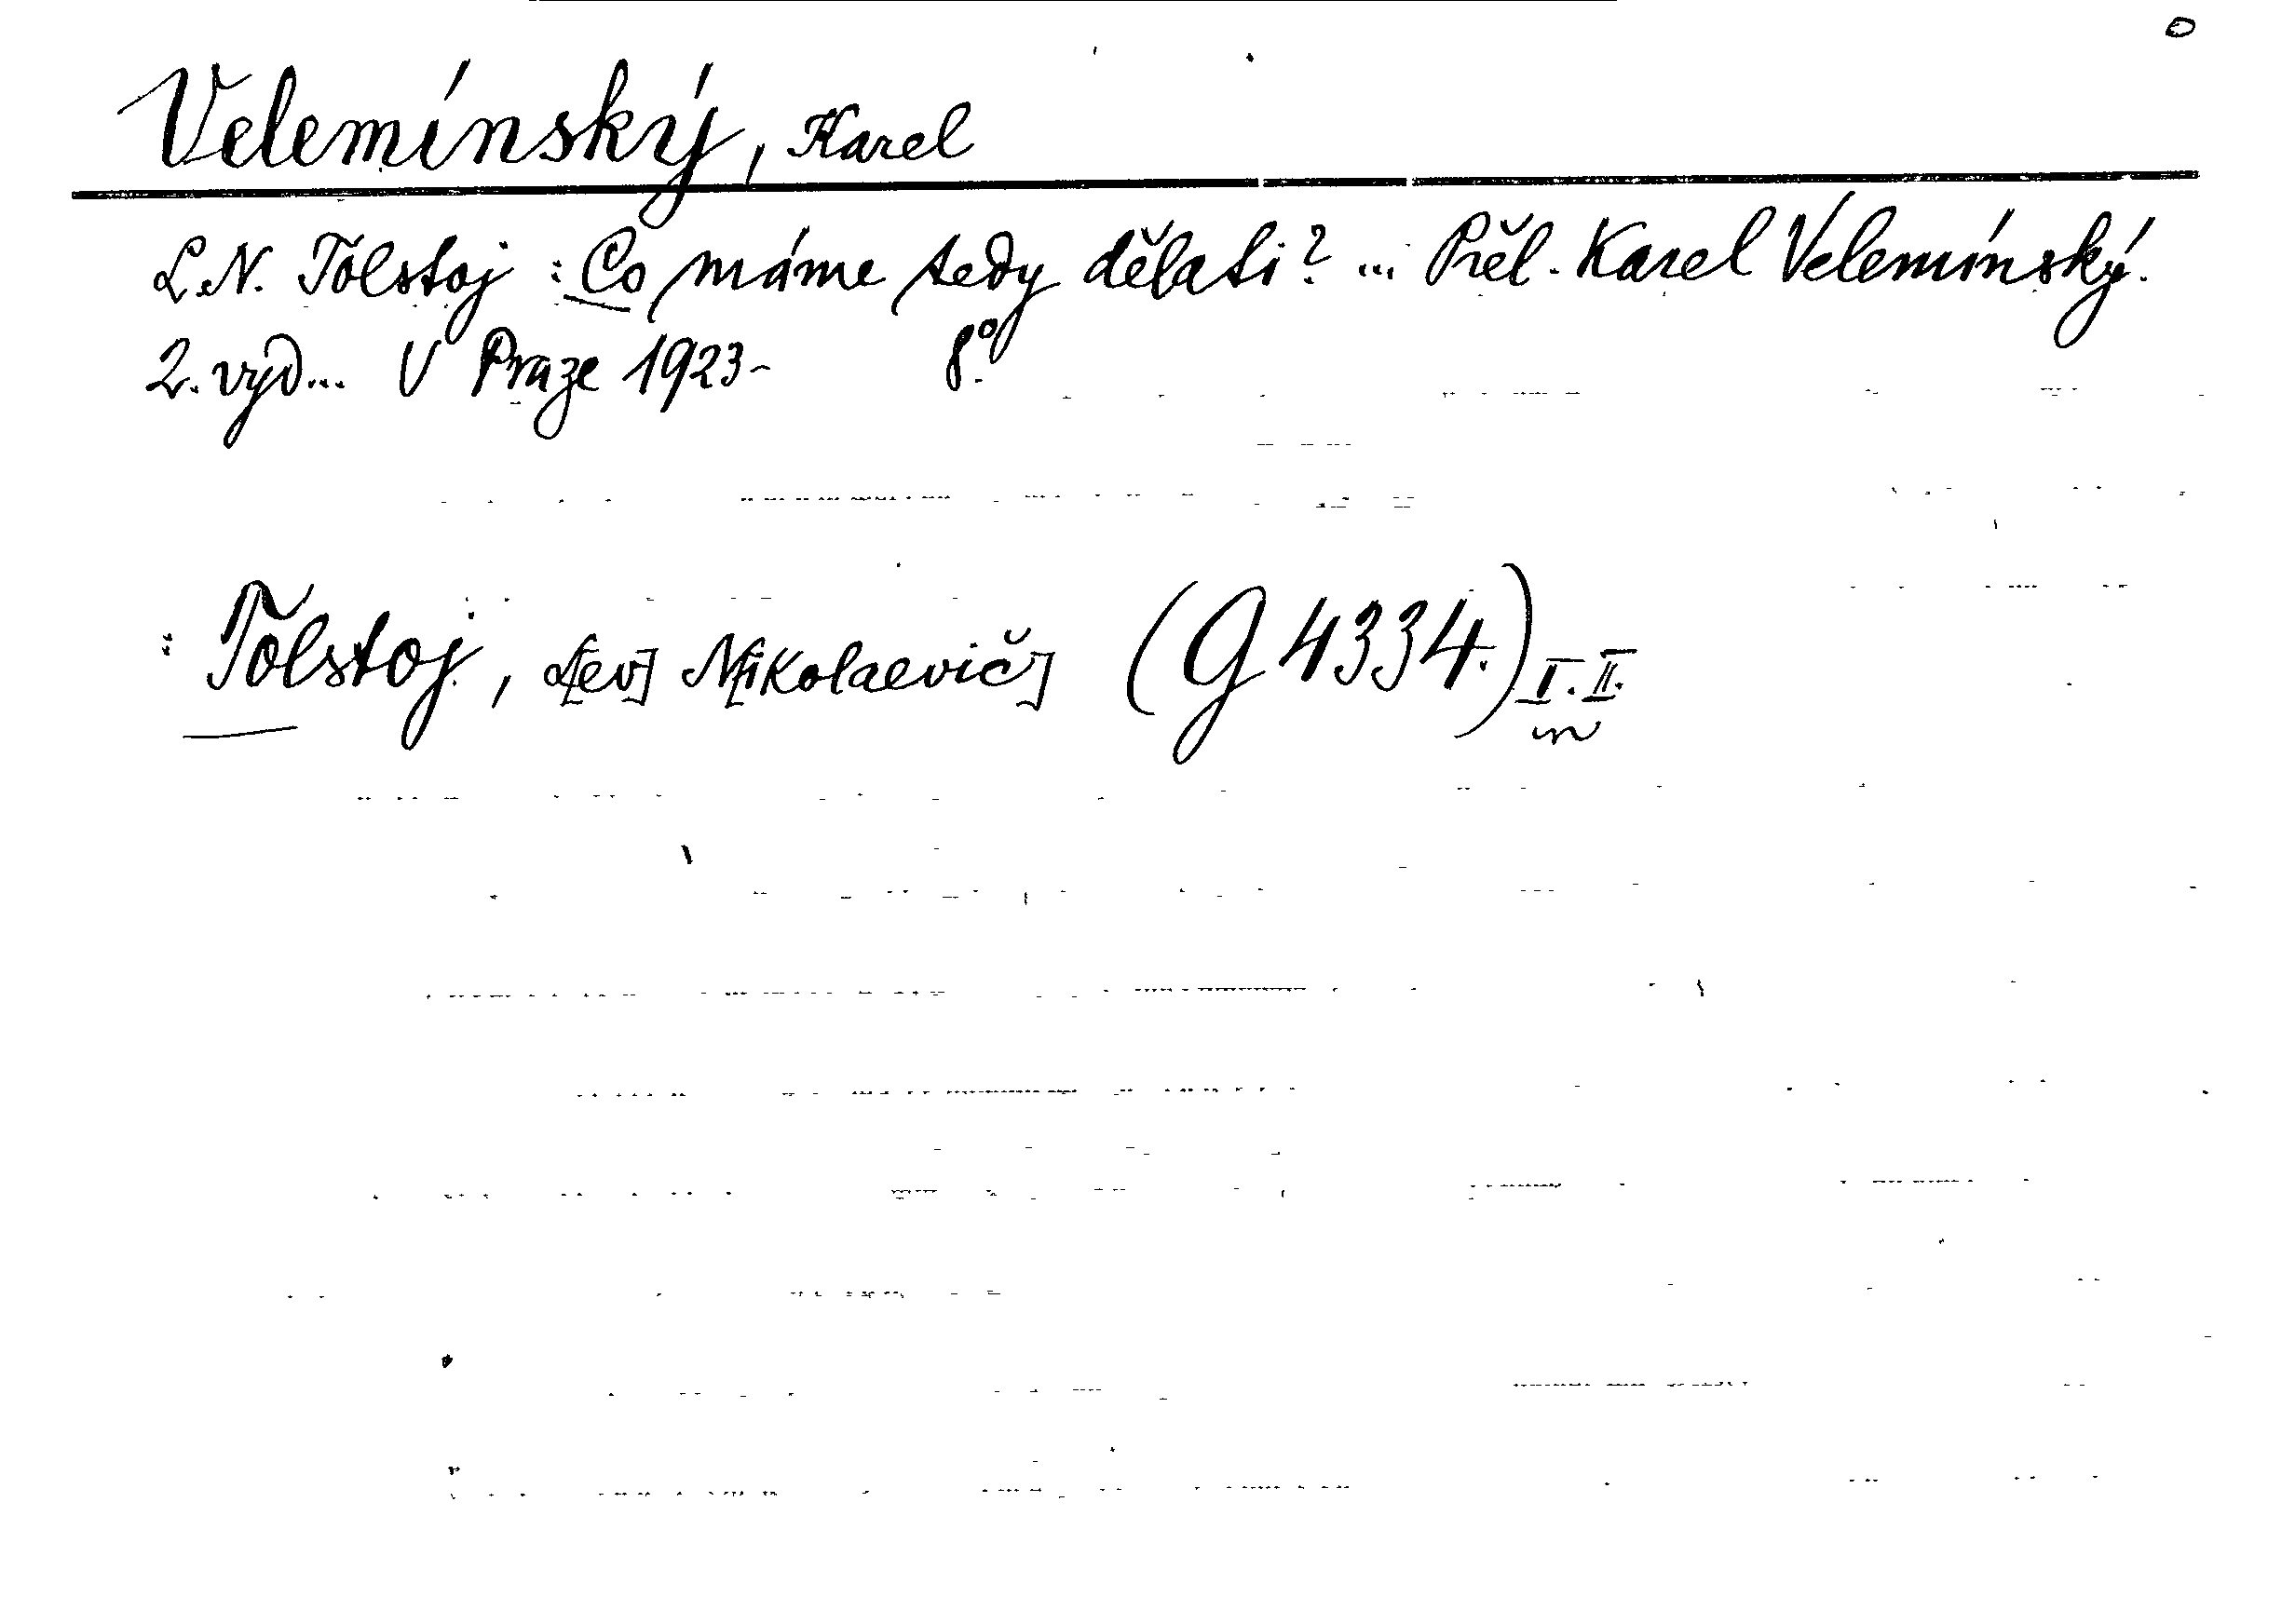 Velemínský, Karel
L.N. Tolstoj : Co máme tedy dělati? ... Přel. Karel Velemínský.
2. vyd... V Praze 1923- 8°.
: Tolstoj, L[ev] N[ikolaevič] (G 4334.) I. II.